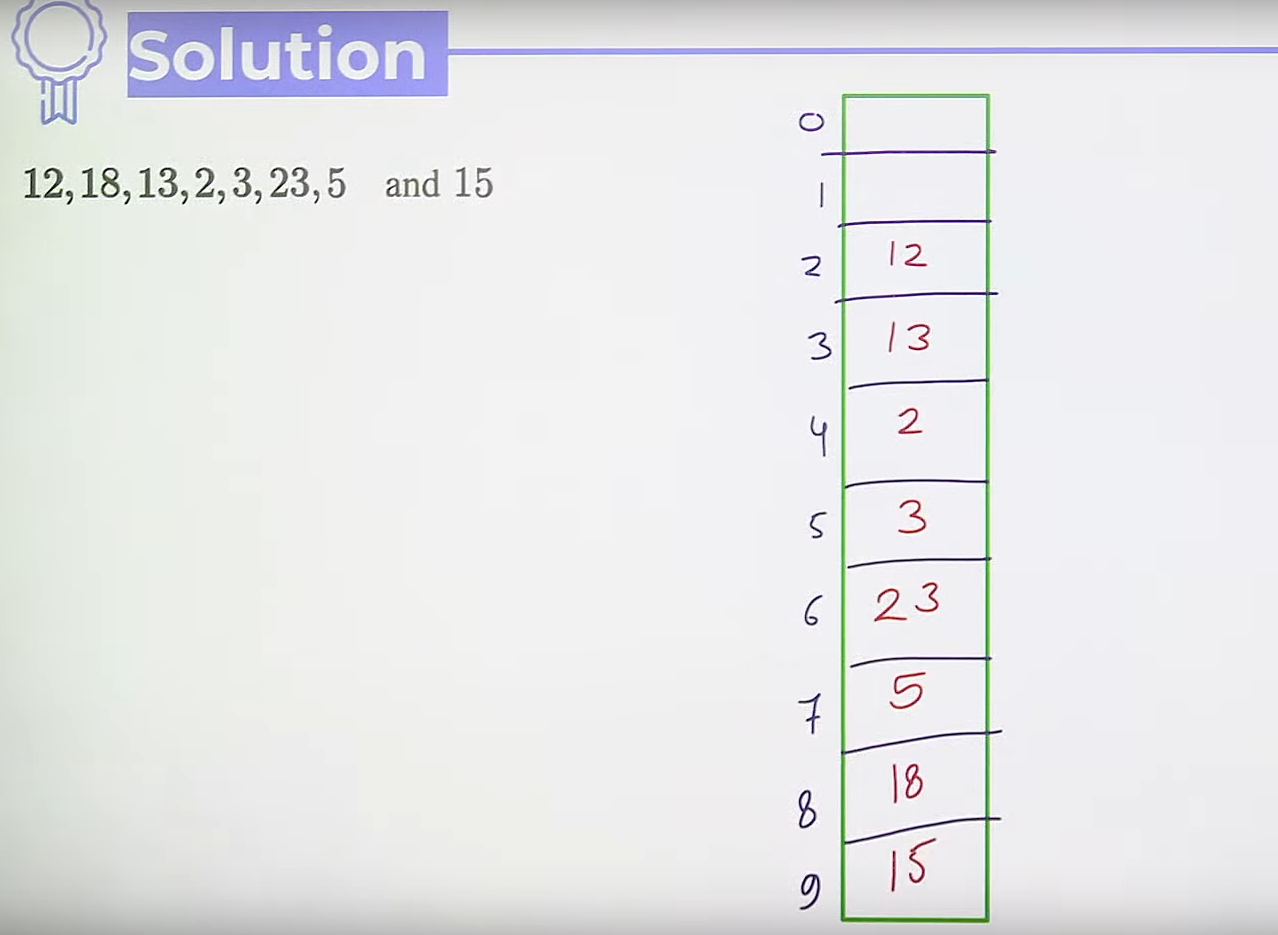 Solution
12, 18, 13, 2, 3, 23, 5 and 15
0
1
2 12
3 13
4 2
5 3
6 23
7 5
8 18
9 15